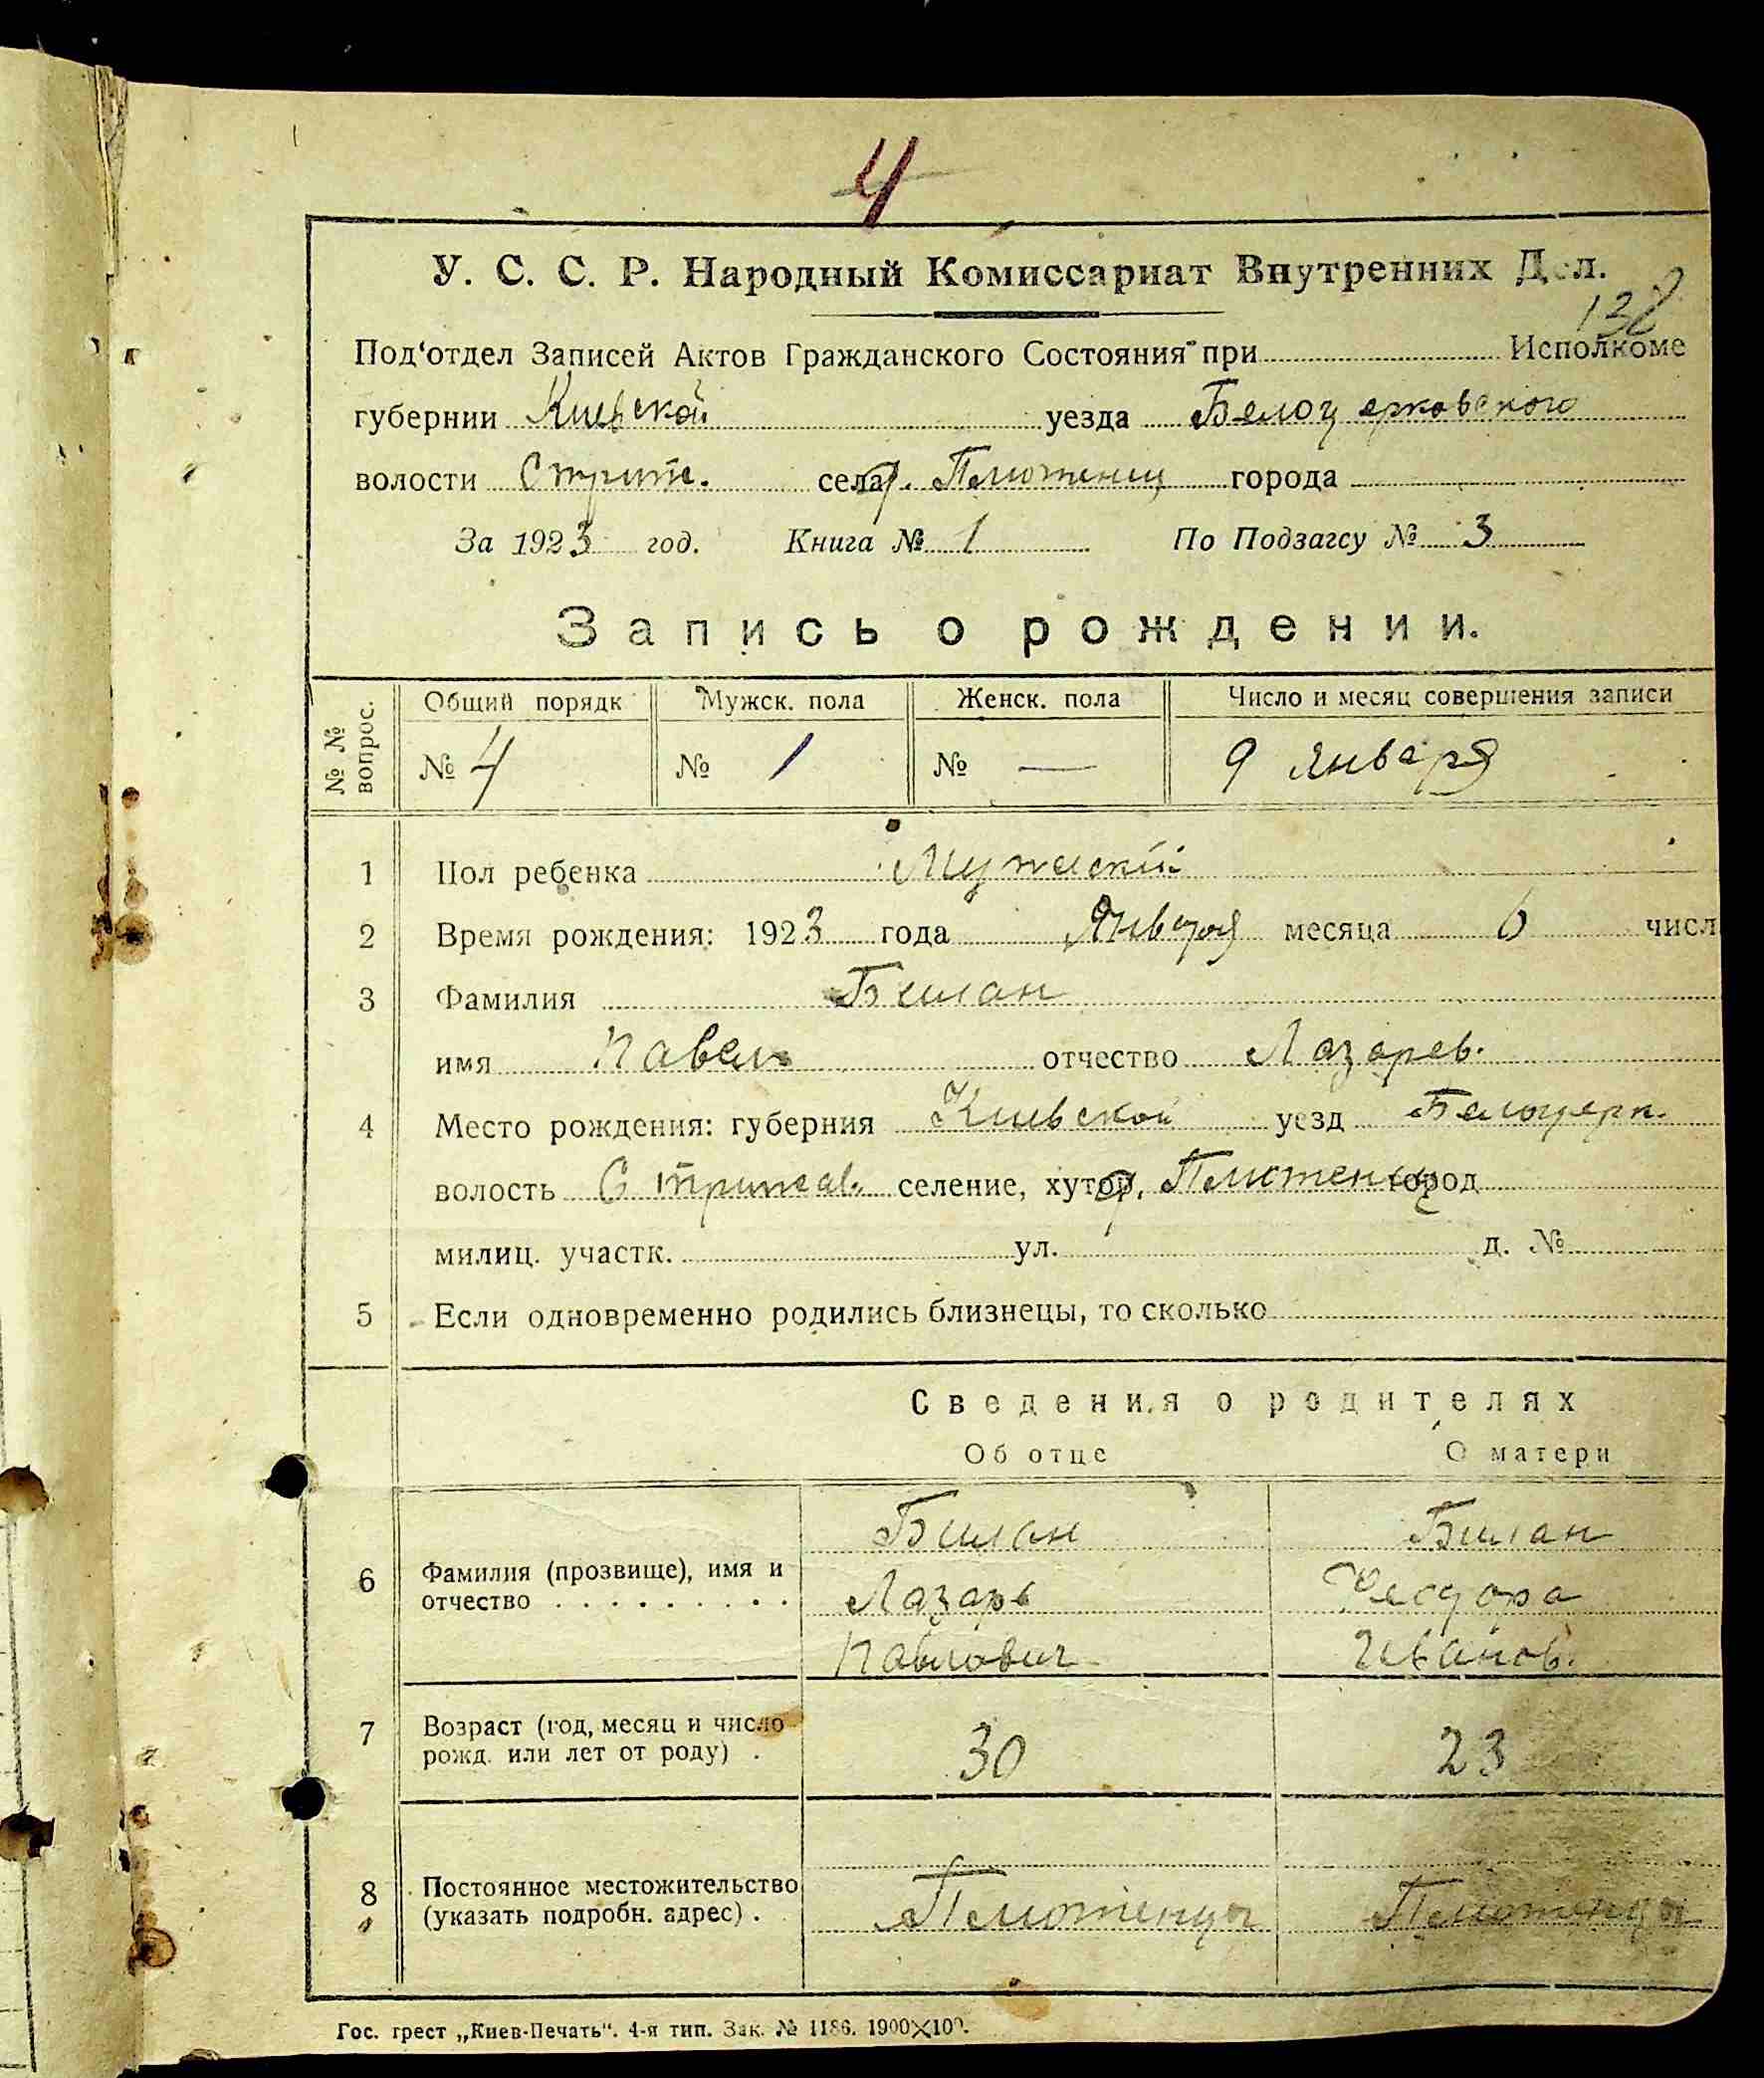 4
У. С. С. Р. Народный Комиссариат Внутренних Дел.
138
Под'отдел Записей Актов Гражданского Состояния при Исполкоме
губернии Киевской уезда Белоцерковского
волости села города
За 1923 год. Книга № 1 По Подзагсу № 3
Запись о рождении.
№ № вопрос. Общий порядк Мужск. пола Женск. пола Число и месяц совершения записи
№ 4 № 1 № — 9 Января
1 Пол ребенка Мужеский
2 Время рождения: 1923 года Января месяца 6 числ
3 Фамилия Билан
имя Павел отчество Лазарев.
4 Место рождения: губерния Киевской уезд Белоцерк.
волость селение, хутор, город
милиц. участк. ул. д. №
5 Если одновременно родились близнецы, то сколько
Сведения о родителях
Об отце О матери
Билан Билан
6 Фамилия (прозвище), имя и отчество . . . . . . . . . Лазарь Феодора
Павлович Иванов.
7 Возраст (год, месяц и число рожд. или лет от роду) . 30 23
8 Постоянное местожительство (указать подробн. адрес) .
Гос. трест „Киев-Печать“. 4-я тип. Зак. № 1186. 1900×100.